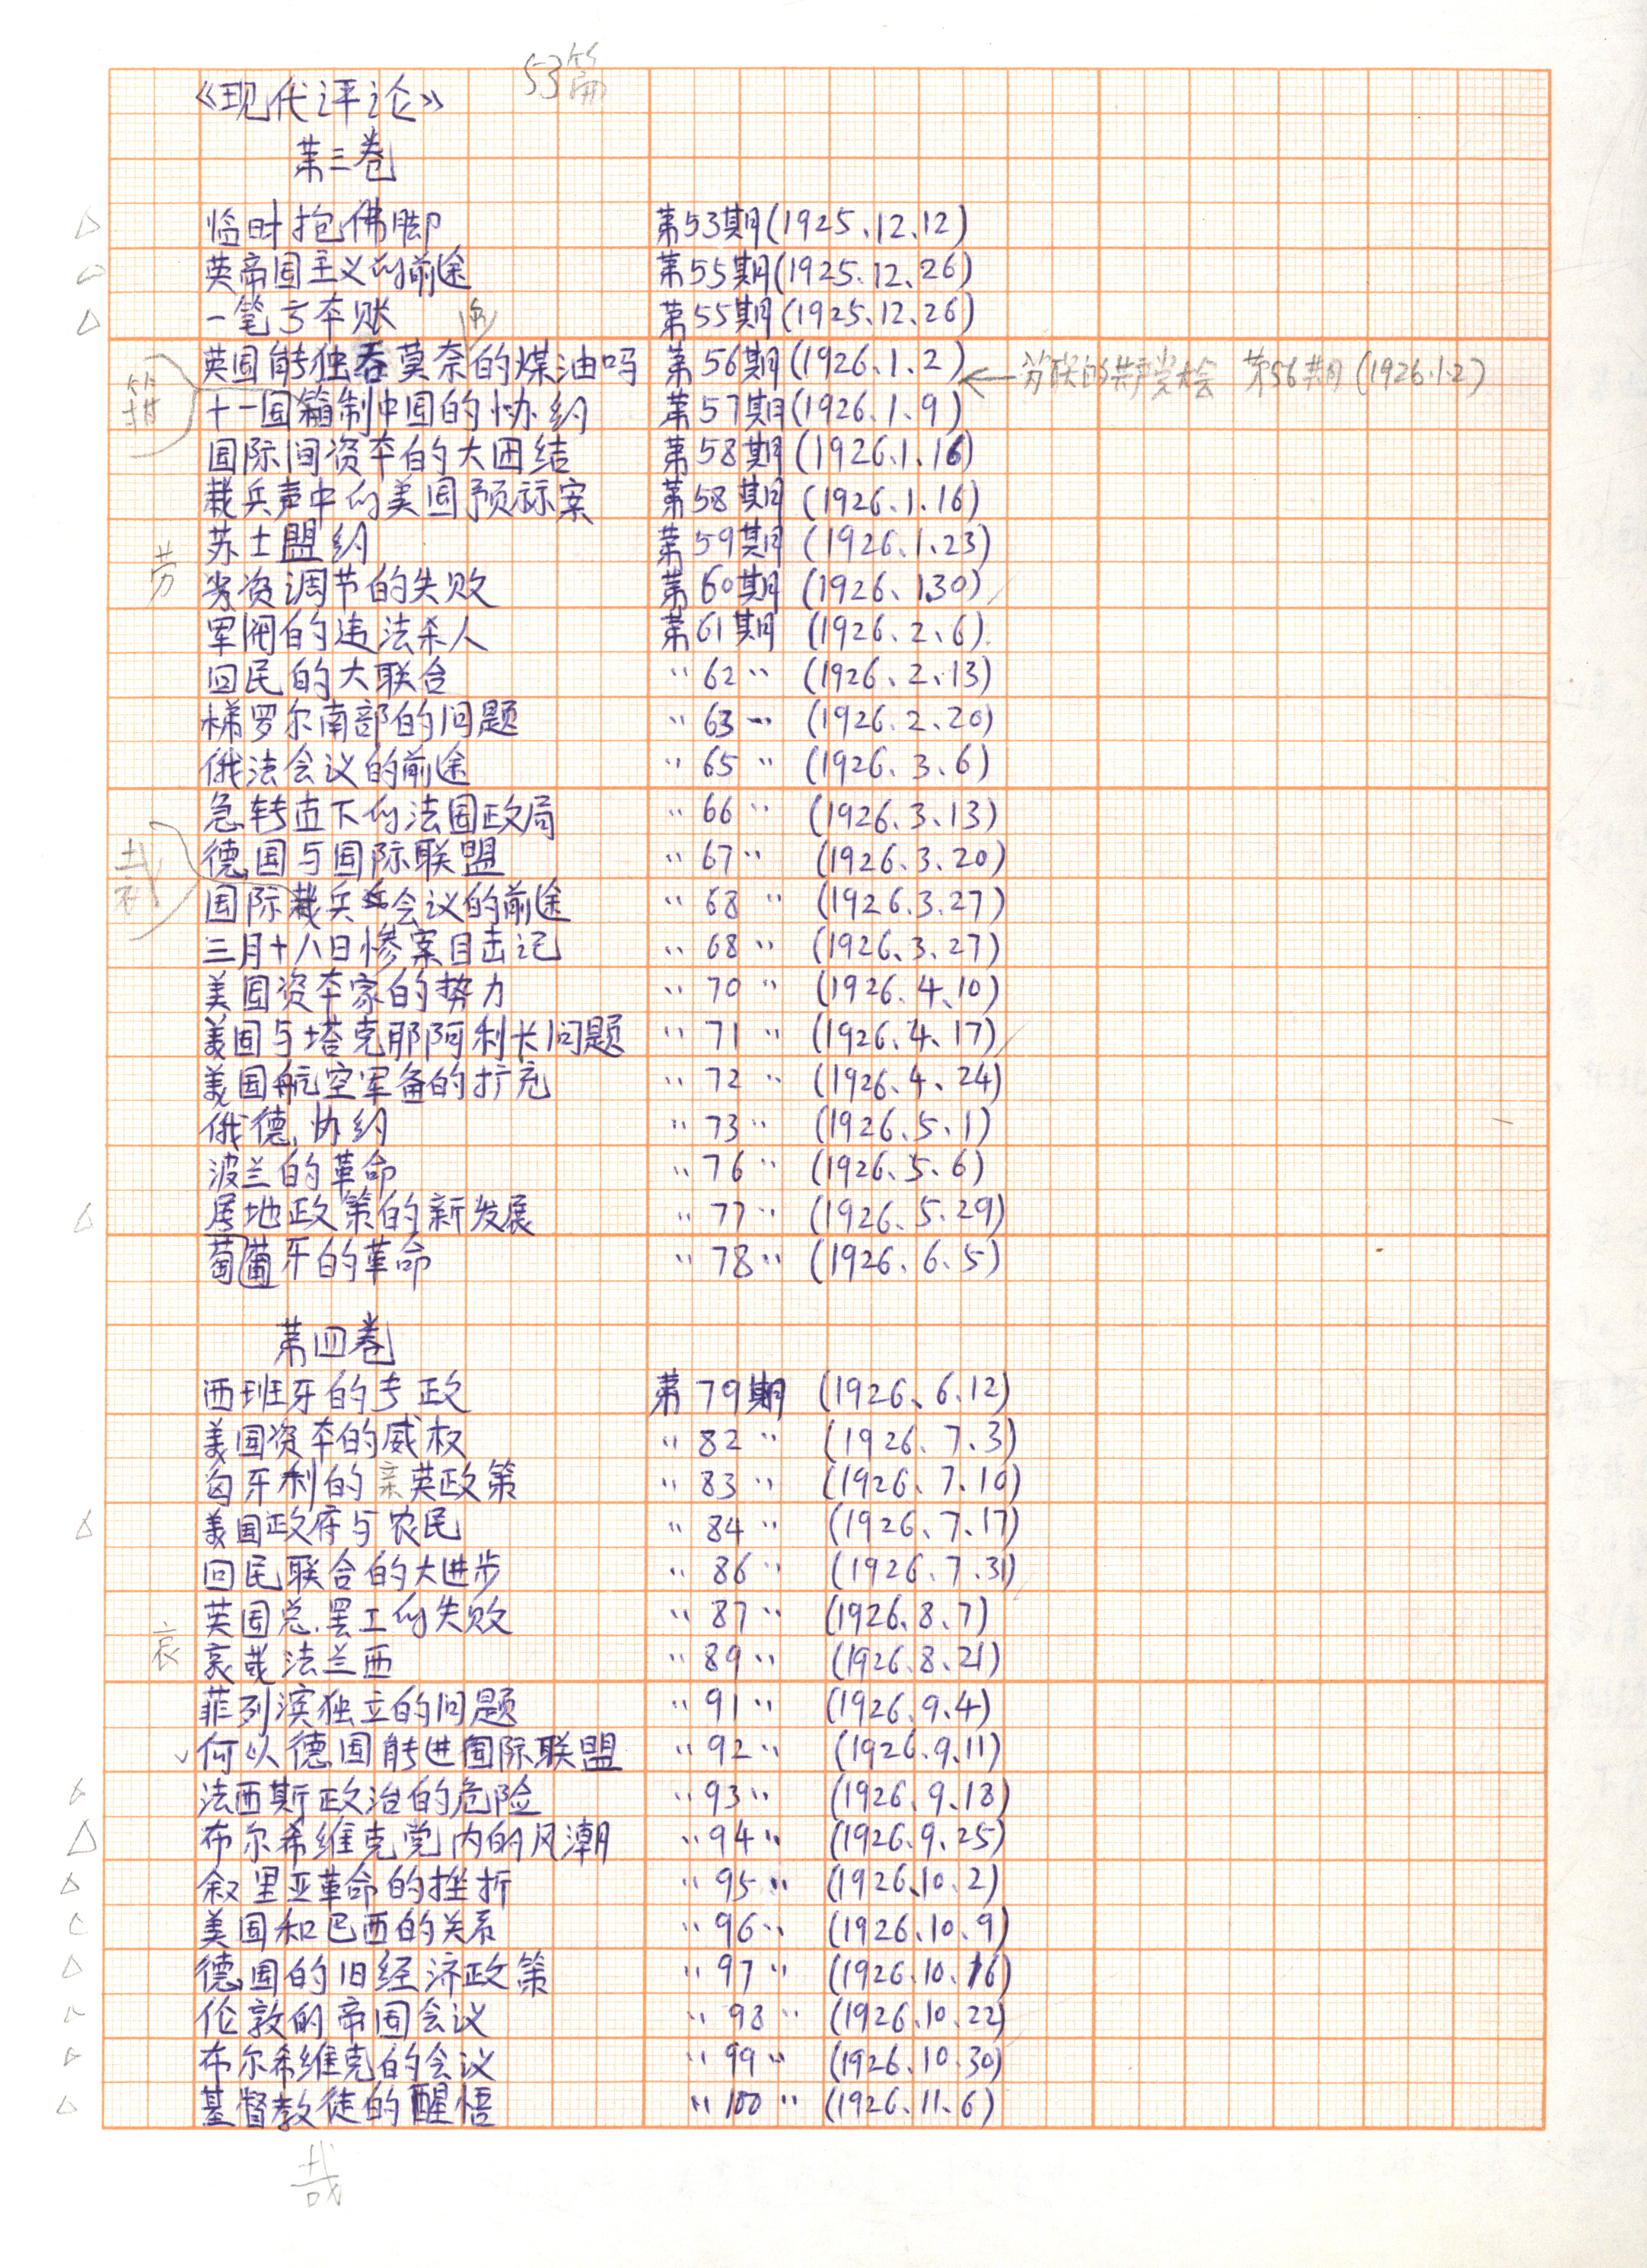 53篇
《现代评论》
第三卷
临时抱佛脚 第53期(1925.12.12)
英帝国主义的前途 第55期(1925.12.26)
一笔亏本账 第55期(1925.12.26)
英国能独吞莫奈的煤油吗 第56期(1926.1.2) ← 苏联的共产党大会 第56期(1926.1.2)
箝
十一国箝制中国的协约 第57期(1926.1.9)
国际间资本的大团结 第58期(1926.1.16)
裁兵声中的美国预标案 第58期(1926.1.16)
苏土盟约 第59期(1926.1.23)
劳 劳资调节的失败 第60期(1926.1.30)
军阀的违法杀人 第61期(1926.2.6)
回民的大联合 〃62〃(1926.2.13)
梯罗尔南部的问题 〃63〃(1926.2.20)
俄法会议的前途 〃65〃(1926.3.6)
急转直下的法国政局 〃66〃(1926.3.13)
裁 德国与国际联盟 〃67〃(1926.3.20)
国际裁兵会议的前途 〃68〃(1926.3.27)
三月十八日惨案目击记 〃68〃(1926.3.27)
美国资本家的势力 〃70〃(1926.4.10)
美国与塔克那阿利长问题 〃71〃(1926.4.17)
美国航空军备的扩充 〃72〃(1926.4.24)
俄德协约 〃73〃(1926.5.1)
波兰的革命 〃76〃(1926.5.6)
属地政策的新发展 〃77〃(1926.5.29)
萄葡牙的革命 〃78〃(1926.6.5)
第四卷
西班牙的专政 第79期(1926.6.12)
美国资本的威权 〃82〃(1926.7.3)
匈牙利的亲英政策 〃83〃(1926.7.10)
美国政府与农民 〃84〃(1926.7.17)
回民联合的大进步 〃86〃(1926.7.31)
英国总罢工的失败 〃87〃(1926.8.7)
哀 哀哉法兰西 〃89〃(1926.8.21)
菲列滨独立的问题 〃91〃(1926.9.4)
何以德国能进国际联盟 〃92〃(1926.9.11)
法西斯政治的危险 〃93〃(1926.9.18)
布尔希维克党内的风潮 〃94〃(1926.9.25)
叙里亚革命的挫折 〃95〃(1926.10.2)
美国和巴西的关系 〃96〃(1926.10.9)
德国的旧经济政策 〃97〃(1926.10.16)
伦敦的帝国会议 〃98〃(1926.10.22)
布尔希维克的会议 〃99〃(1926.10.30)
基督教徒的醒悟 〃100〃(1926.11.6)
哉